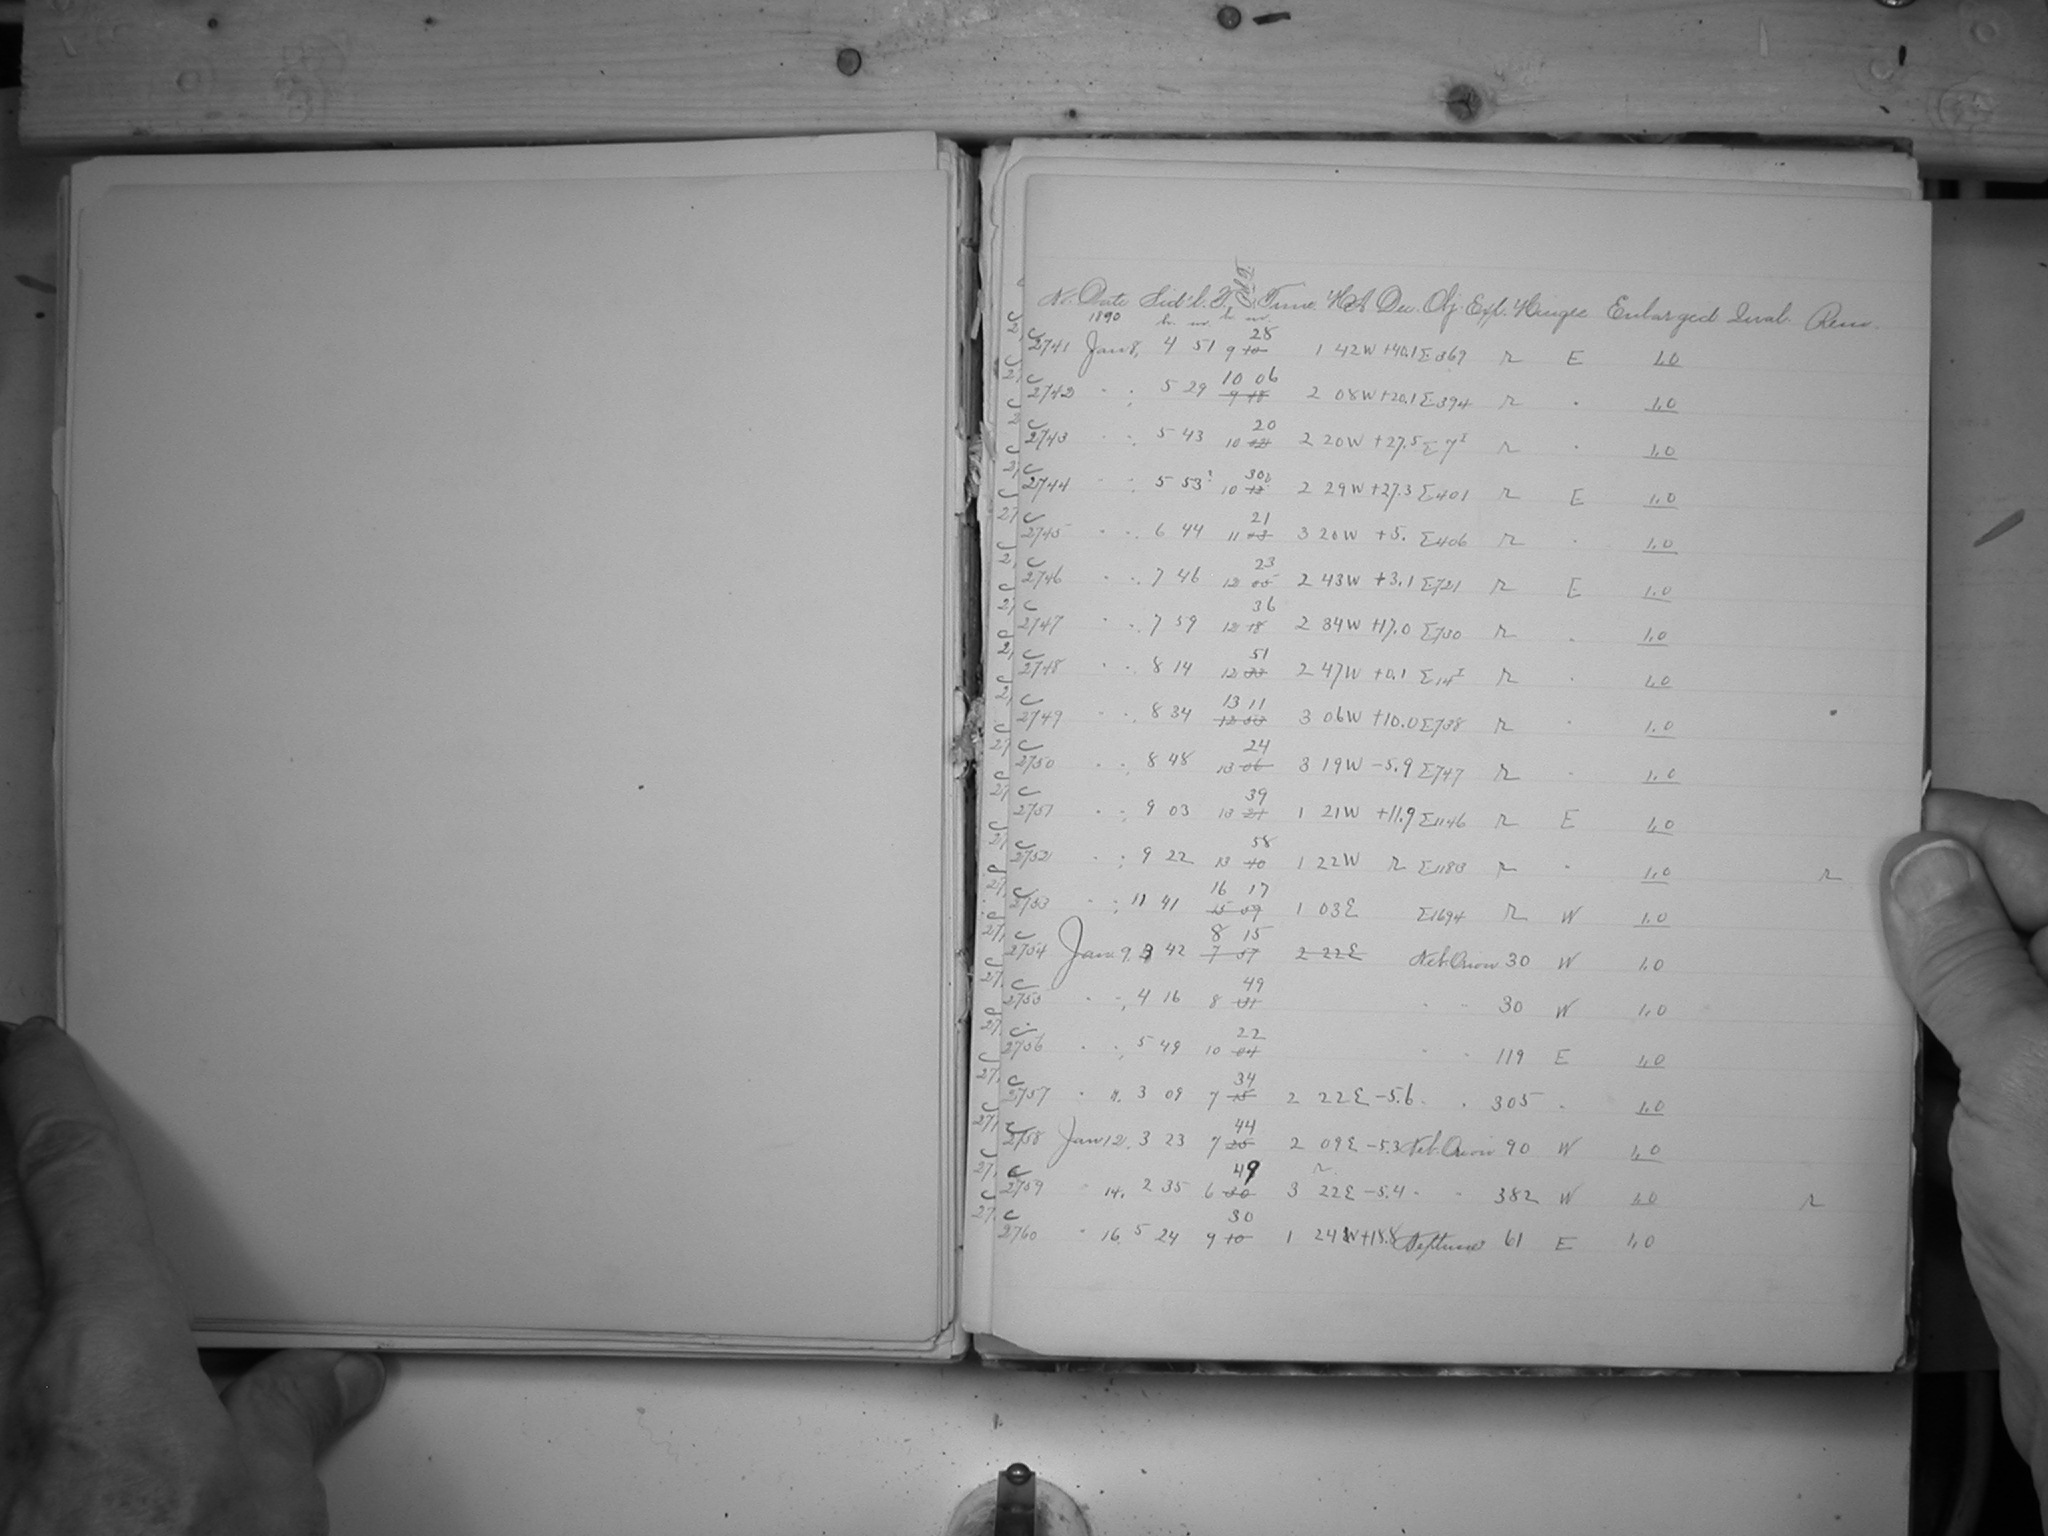 No. Date Sid'l. T. C. Time. HA Dec. Obj. Exp. Hinges Enlarged Qual. Rem.
1890 h. m. h. m.
C 28
2741 Jan 8, 4 51 9 10 1 42W +40.1 Σ369 r E 1.0
C 10 06
2742 " ", 5 29 9 48 2 08W +20.1 Σ394 r " 1.0
C 20
2743 " ", 5 43 10 2 20W +27.5 Σ7I r " 1.0
C 30
2744 " ", 5 53 10 12 2 29W +27.3 Σ401 r E 1.0
C 21
2745 " ", 6 44 11 03 3 20W +5. Σ406 r " 1.0
C 23
2746 " ", 7 46 12 05 2 43W +3.1 Σ721 r E 1.0
C 36
2747 " ", 7 59 12 18 2 34W +17.0 Σ730 r " 1.0
C 51
2748 " ", 8 14 12 33 2 47W +0.1 Σ14I r " 1.0
C 13 11
2749 " ", 8 34 12 53 3 06W +10.0 Σ738 r " 1.0
C 24
2750 " ", 8 48 13 06 3 19W -5.9 Σ747 r " 1.0
C 39
2751 " ", 9 03 13 21 1 21W +11.9 Σ1146 r E 1.0
C 58
2752 " ", 9 22 13 40 1 22W r Σ1183 r " 1.0 r
C 16 17
2753 " ", 11 41 15 59 1 03E Σ1694 r W 1.0
C 8 15
2754 Jan. 9, 3 42 7 57 2 22E Neb. Orion 30 W 1.0
C 49
2755 " ", 4 16 8 31 " " 30 W 1.0
C 22
2756 " ", 5 49 10 04 " " 119 E 1.0
C 34
2757 " 11, 3 09 7 15 2 22E -5.6 " " 305 " 1.0
C 44
2758 Jan 12, 3 23 7 25 2 09E -5.3 Neb. Orion 90 W 1.0
C 49 r
2759 " 14, 2 35 6 30 3 22E -5.4 " " 382 W 1.0 r
C 30
2760 " 16, 5 24 9 10 1 24W +18.8 Neptune 61 E 1.0